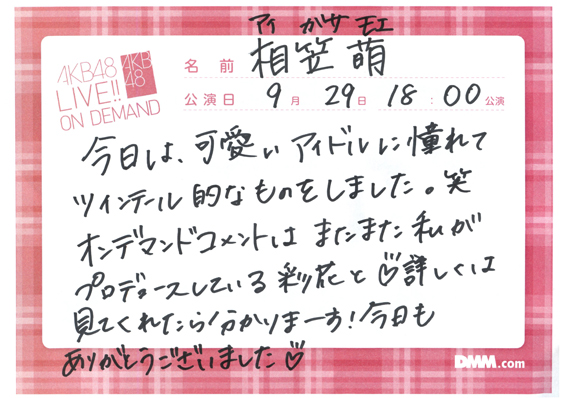 アイ がサ モエ
AKB48
LIVE!!
ON DEMAND
AKB
48
名前 相笠萌
公演日 9月29日 18:00公演
今日は、可愛いアイドルに憧れて
ツインテール的なものをしました。笑
オンデマンドコメントはまたまた私が
プロデュースしている彩花と♡詳しくは
見てくれたら分かりまーす!今日も
ありがとうございました♡
DMM.com